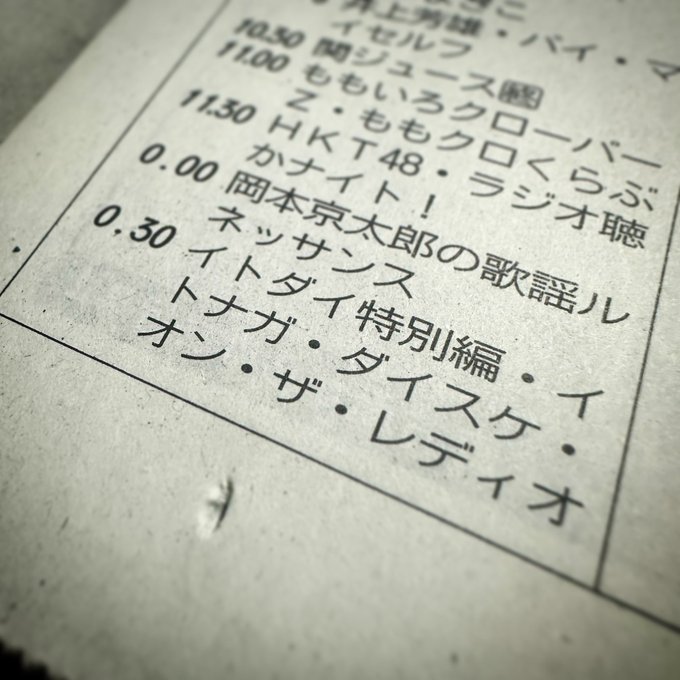 井上芳雄・バイ・マ
イセルフ
10.30 関ジュース
11.00 ももいろクローバー
Z・ももクロくらぶ
11.30 HKT48・ラジオ聴
かナイト!
0.00 岡本京太郎の歌謡ル
ネッサンス
0.30 イトダイ特別編・イ
トナガ・ダイスケ・
オン・ザ・レディオ